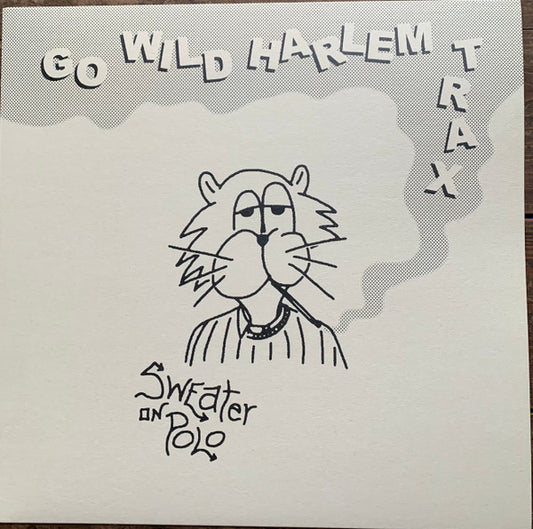 GO WILD HARLEM TRAX
SWEater
ON
POLO